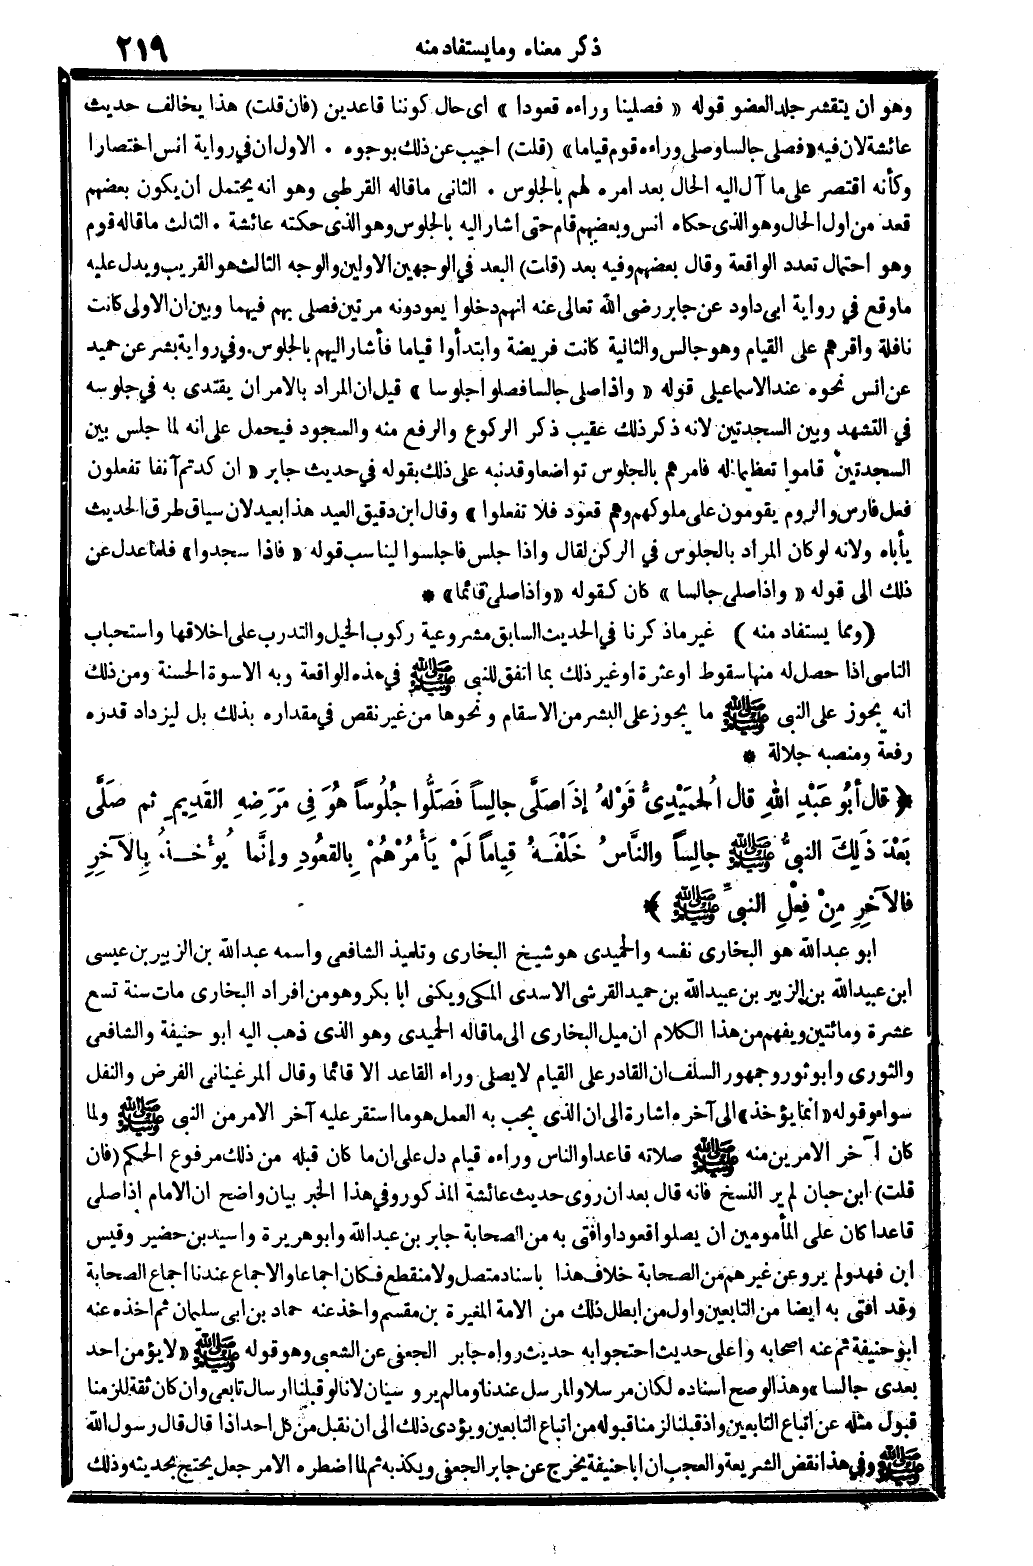 ذكر معناه وما يستفاد منه ٢١٩
وهو ان يتقشر جلد العضو قوله « فصلينا وراءه قعودا » اى حال كوننا قاعدين (فان قلت) هذا يخالف حديث
عائشة لان فيه «فصلى جالسا وصلى وراءه قوم قياما» (قلت) اجيب عن ذلك بوجوه . الاول ان فى رواية انس اختصارا
وكأنه اقتصر على ما آل اليه الحال بعد امره لهم بالجلوس . الثانى ما قاله القرطبى وهو انه يحتمل ان يكون بعضهم
قعد من اول الحال وهو الذى حكاه انس وبعضهم قام حتى اشار اليه بالجلوس وهو الذى حكته عائشة . الثالث ما قاله قوم
وهو احتمال تعدد الواقعة وقال بعضهم وفيه بعد (قلت) البعد فى الوجهين الاولين والوجه الثالث هو القريب ويدل عليه
ما وقع في رواية ابى داود عن جابر رضى الله تعالى عنه انهم دخلوا يعودونه مرتين فصلى بهم فيهما وبين ان الاولى كانت
نافلة واقرهم على القيام وهو جالس والثانية كانت فريضة وابتدأوا قياما فأشار اليهم بالجلوس. وفى رواية بشر عن حميد
عن انس نحوه عند الاسماعيلى قوله « واذا صلى جالسا فصلوا جلوسا » قيل ان المراد بالامر ان يقتدى به فى جلوسه
فى التشهد وبين السجدتين لانه ذكر ذلك عقيب ذكر الركوع والرفع منه والسجود فيحمل على انه لما جلس بين
السجدتين قاموا تعظيما له فامرهم بالجلوس تواضعا وقد نبه على ذلك بقوله فى حديث جابر « ان كدتم آنفا تفعلون
فعل فارس والروم يقومون على ملوكهم وهم قعود فلا تفعلوا » وقال ابن دقيق العيد هذا بعيد لان سياق طرق الحديث
يأباه ولانه لو كان المراد بالجلوس في الركن لقال واذا جلس فاجلسوا ليناسب قوله « فاذا سجدوا » فلما عدل عن
ذلك الى قوله « واذا صلى جالسا » كان كقوله «واذا صلى قائما» *
(ومما يستفاد منه ) غير ما ذكرنا فى الحديث السابق مشروعية ركوب الخيل والتدرب على اخلاقها واستحباب
التاسى اذا حصل له منها سقوط او عثرة او غير ذلك بما اتفق للنبى ﷺ فى هذه الواقعة وبه الاسوة الحسنة ومن ذلك
انه يجوز على النبى ﷺ ما يجوز على البشر من الاسقام ونحوها من غير نقص فى مقداره بذلك بل ليزداد قدره
رفعة ومنصبه جلالة *
﴿ قال أبُو عَبْدِ اللهِ قال الْحُمَيْدِىُّ قَوْلُهُ إذَا صَلَّى جالِساً فَصَلُّوا جُلُوساً هُوَ فِى مَرَضِهِ القَدِيمِ ثم صَلَّى
بَعْدَ ذَلِكَ النبىُّ ﷺ جالِساً والنَّاسُ خَلْفَهُ قِياماً لَمْ يَأْمُرْهُمْ بِالقعُودِ وإنَّما يُؤخَذُ بِالآخِرِ
فالآخِرِ مِنْ فِعْلِ النبىِّ ﷺ ﴾
ابو عبدالله هو البخارى نفسه والحميدى هو شيخ البخارى وتلميذ الشافعى واسمه عبدالله بن الزبير بن عيسى
ابن عبيدالله بن الزبير بن عبيدالله بن حميد القرشى الاسدى المكى ويكنى ابا بكر وهو من افراد البخارى مات سنة تسع
عشرة ومائتين ويفهم من هذا الكلام ان ميل البخارى الى ما قاله الحميدى وهو الذى ذهب اليه ابو حنيفة والشافعى
والثورى وابو ثور وجمهور السلف ان القادر على القيام لا يصلى وراء القاعد الا قائما وقال المرغينانى الفرض والنفل
سواء وقوله « انما يؤخذ » الى آخره اشارة الى ان الذى يجب به العمل هو ما استقر عليه آخر الامر من النبى ﷺ ولما
كان آخر الامرين منه ﷺ صلاته قاعدا والناس وراءه قيام دل على ان ما كان قبله من ذلك مرفوع الحكم (فان
قلت) ابن حبان لم ير النسخ فانه قال بعد ان روى حديث عائشة المذكور وفى هذا الخبر بيان واضح ان الامام اذا صلى
قاعدا كان على المأمومين ان يصلوا قعودا وافتى به من الصحابة جابر بن عبدالله وابو هريرة واسيد بن حضير وقيس
ابن فهد ولم يرو عن غيرهم من الصحابة خلاف هذا باسناد متصل ولا منقطع فكان اجماعا والاجماع عندنا اجماع الصحابة
وقد افتى به ايضا من التابعين واول من ابطل ذلك من الامة المغيرة بن مقسم واخذ عنه حماد بن ابى سلمان ثم اخذه عنه
ابو حنيفة ثم عنه اصحابه واعلى حديث احتجوا به حديث رواه جابر الجعفى عن الشعبى وهو قوله ﷺ « لا يؤمن احد
بعدى جالسا » وهذا لو صح اسناده لكان مرسلا والمرسل عندنا وما لم يرو سيان لانا لو قبلنا ارسال تابعى وان كان ثقة للزمنا
قبول مثله عن اتباع التابعين واذ قبلنا لزمنا قبوله من اتباع التابعين ويؤدى ذلك الى ان نقبل من كل احد اذا قال قال رسول الله
ﷺ وفى هذا نقض الشريعة والعجب ان ابا حنيفة يخرج عن جابر الجعفى ويكذبه ثم لما اضطره الامر جعل يحتج بحديثه وذلك